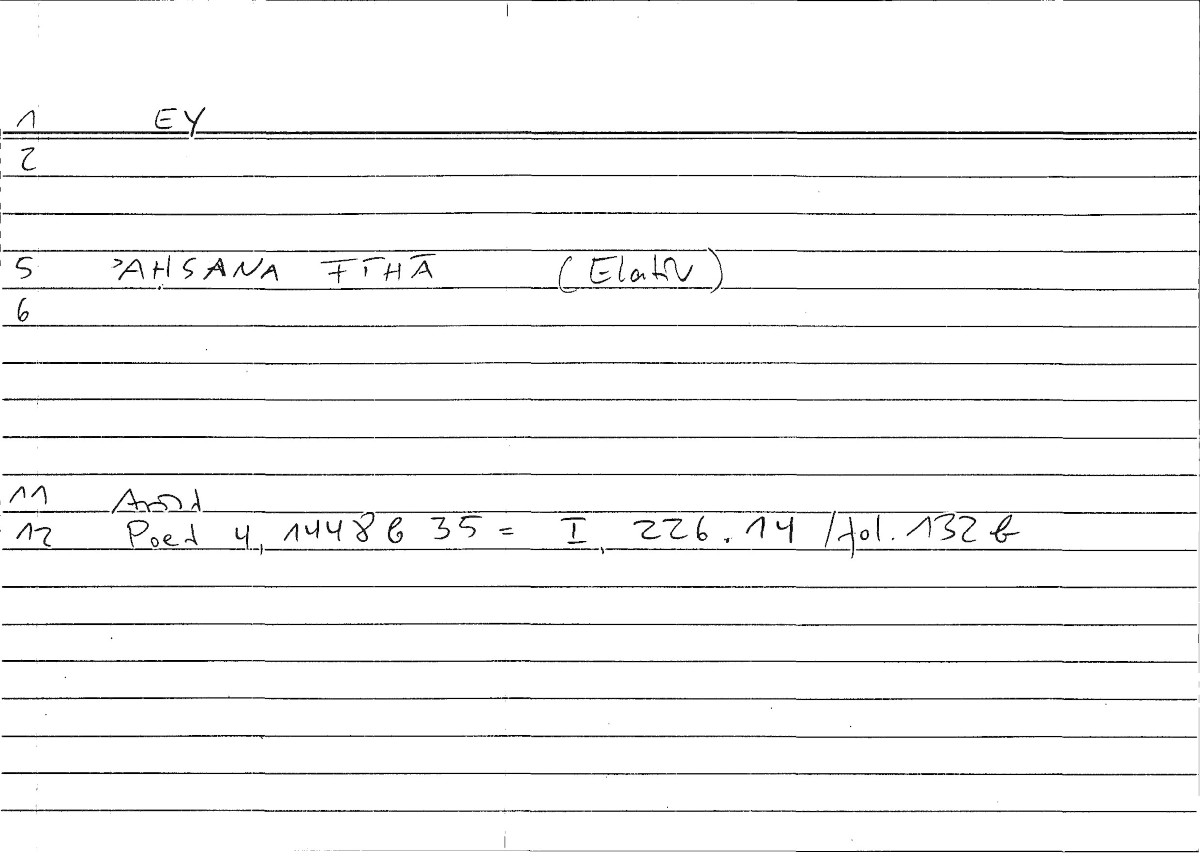 1 EY
2
5 ʾAḤSANA FĪHĀ (Elativ)
6
11 Arist
12 Poet 4, 1448 b 35 = I, 226.14 / fol. 132 b